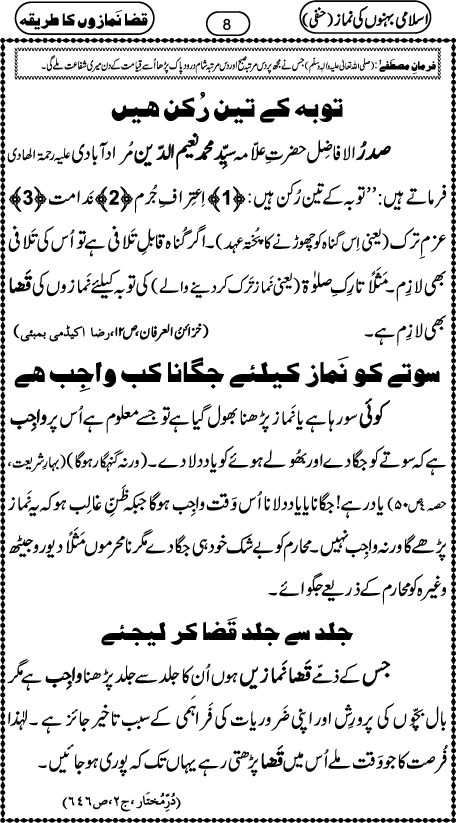 اسلامی بہنوں کی نماز (حنفی)
8
قضا نمازوں کا طریقہ
فرمانِ مصطفےٰ: (صلی اللہ تعالیٰ علیہ والہ وسلم) جس نے مجھ پر دس مرتبہ صبح اور دس مرتبہ شام درود پاک پڑھا اُسے قیامت کے دن میری شفاعت ملے گی۔
توبہ کے تین رُکن ھیں
صدرُ الافاضِل حضرتِ علّامہ سیِّد محمد نعیم الدّین مُراد آبادی علیہ رحمۃ الھادی
فرماتے ہیں: ’’توبہ کے تین رُکن ہیں: ﴿1﴾ اِعتِرافِ جُرم ﴿2﴾ نَدامت ﴿3﴾
عزمِ ترک (یعنی اِس گناہ کو چھوڑنے کا پختہ عہد)۔ اگر گناہ قابلِ تَلافی ہے تو اُس کی تَلافی
بھی لازم۔ مَثَلاً تارِکِ صلوٰۃ (یعنی نماز ترک کر دینے والے) کی توبہ کیلئے نَمازوں کی قَضا
بھی لازِم ہے۔ (خزائنُ العرفان، ص۱۲، رضا اکیڈمی بمبئی)
سوتے کو نَماز کیلئے جگانا کب واجِب ھے
کوئی سو رہا ہے یا نَماز پڑھنا بھول گیا ہے تو جسے معلوم ہے اُس پر واجِب
ہے کہ سوتے کو جگا دے اور بھولے ہوئے کو یاد دلا دے۔ (ورنہ گنہگار ہوگا) (بہارِ شریعت،
حصہ ۴ ص۵۰) یاد رہے! جگانا یا یاد دلانا اُس وَقت واجِب ہوگا جبکہ ظَنِّ غالِب ہو کہ یہ نَماز
پڑھے گا ورنہ واجِب نہیں۔ مَحارِم کو بے شک خود ہی جگا دے مگر نا محرموں مَثَلاً دیور و جیٹھ
وغیرہ کو محارم کے ذریعے جگوائے۔
جلد سے جلد قَضا کر لیجئے
جس کے ذمّے قَضا نَمازیں ہوں اُن کا جلد سے جلد پڑھنا واجِب ہے مگر
بال بچّوں کی پرورِش اور اپنی ضَروریات کی فَراہَمی کے سبب تاخیر جائز ہے۔ لہٰذا
فُرصت کا جو وَقت ملے اُس میں قضا پڑھتی رہے یہاں تک کہ پوری ہو جائیں۔
(دُرِّمُختار، ج۲، ص۶۴۶)